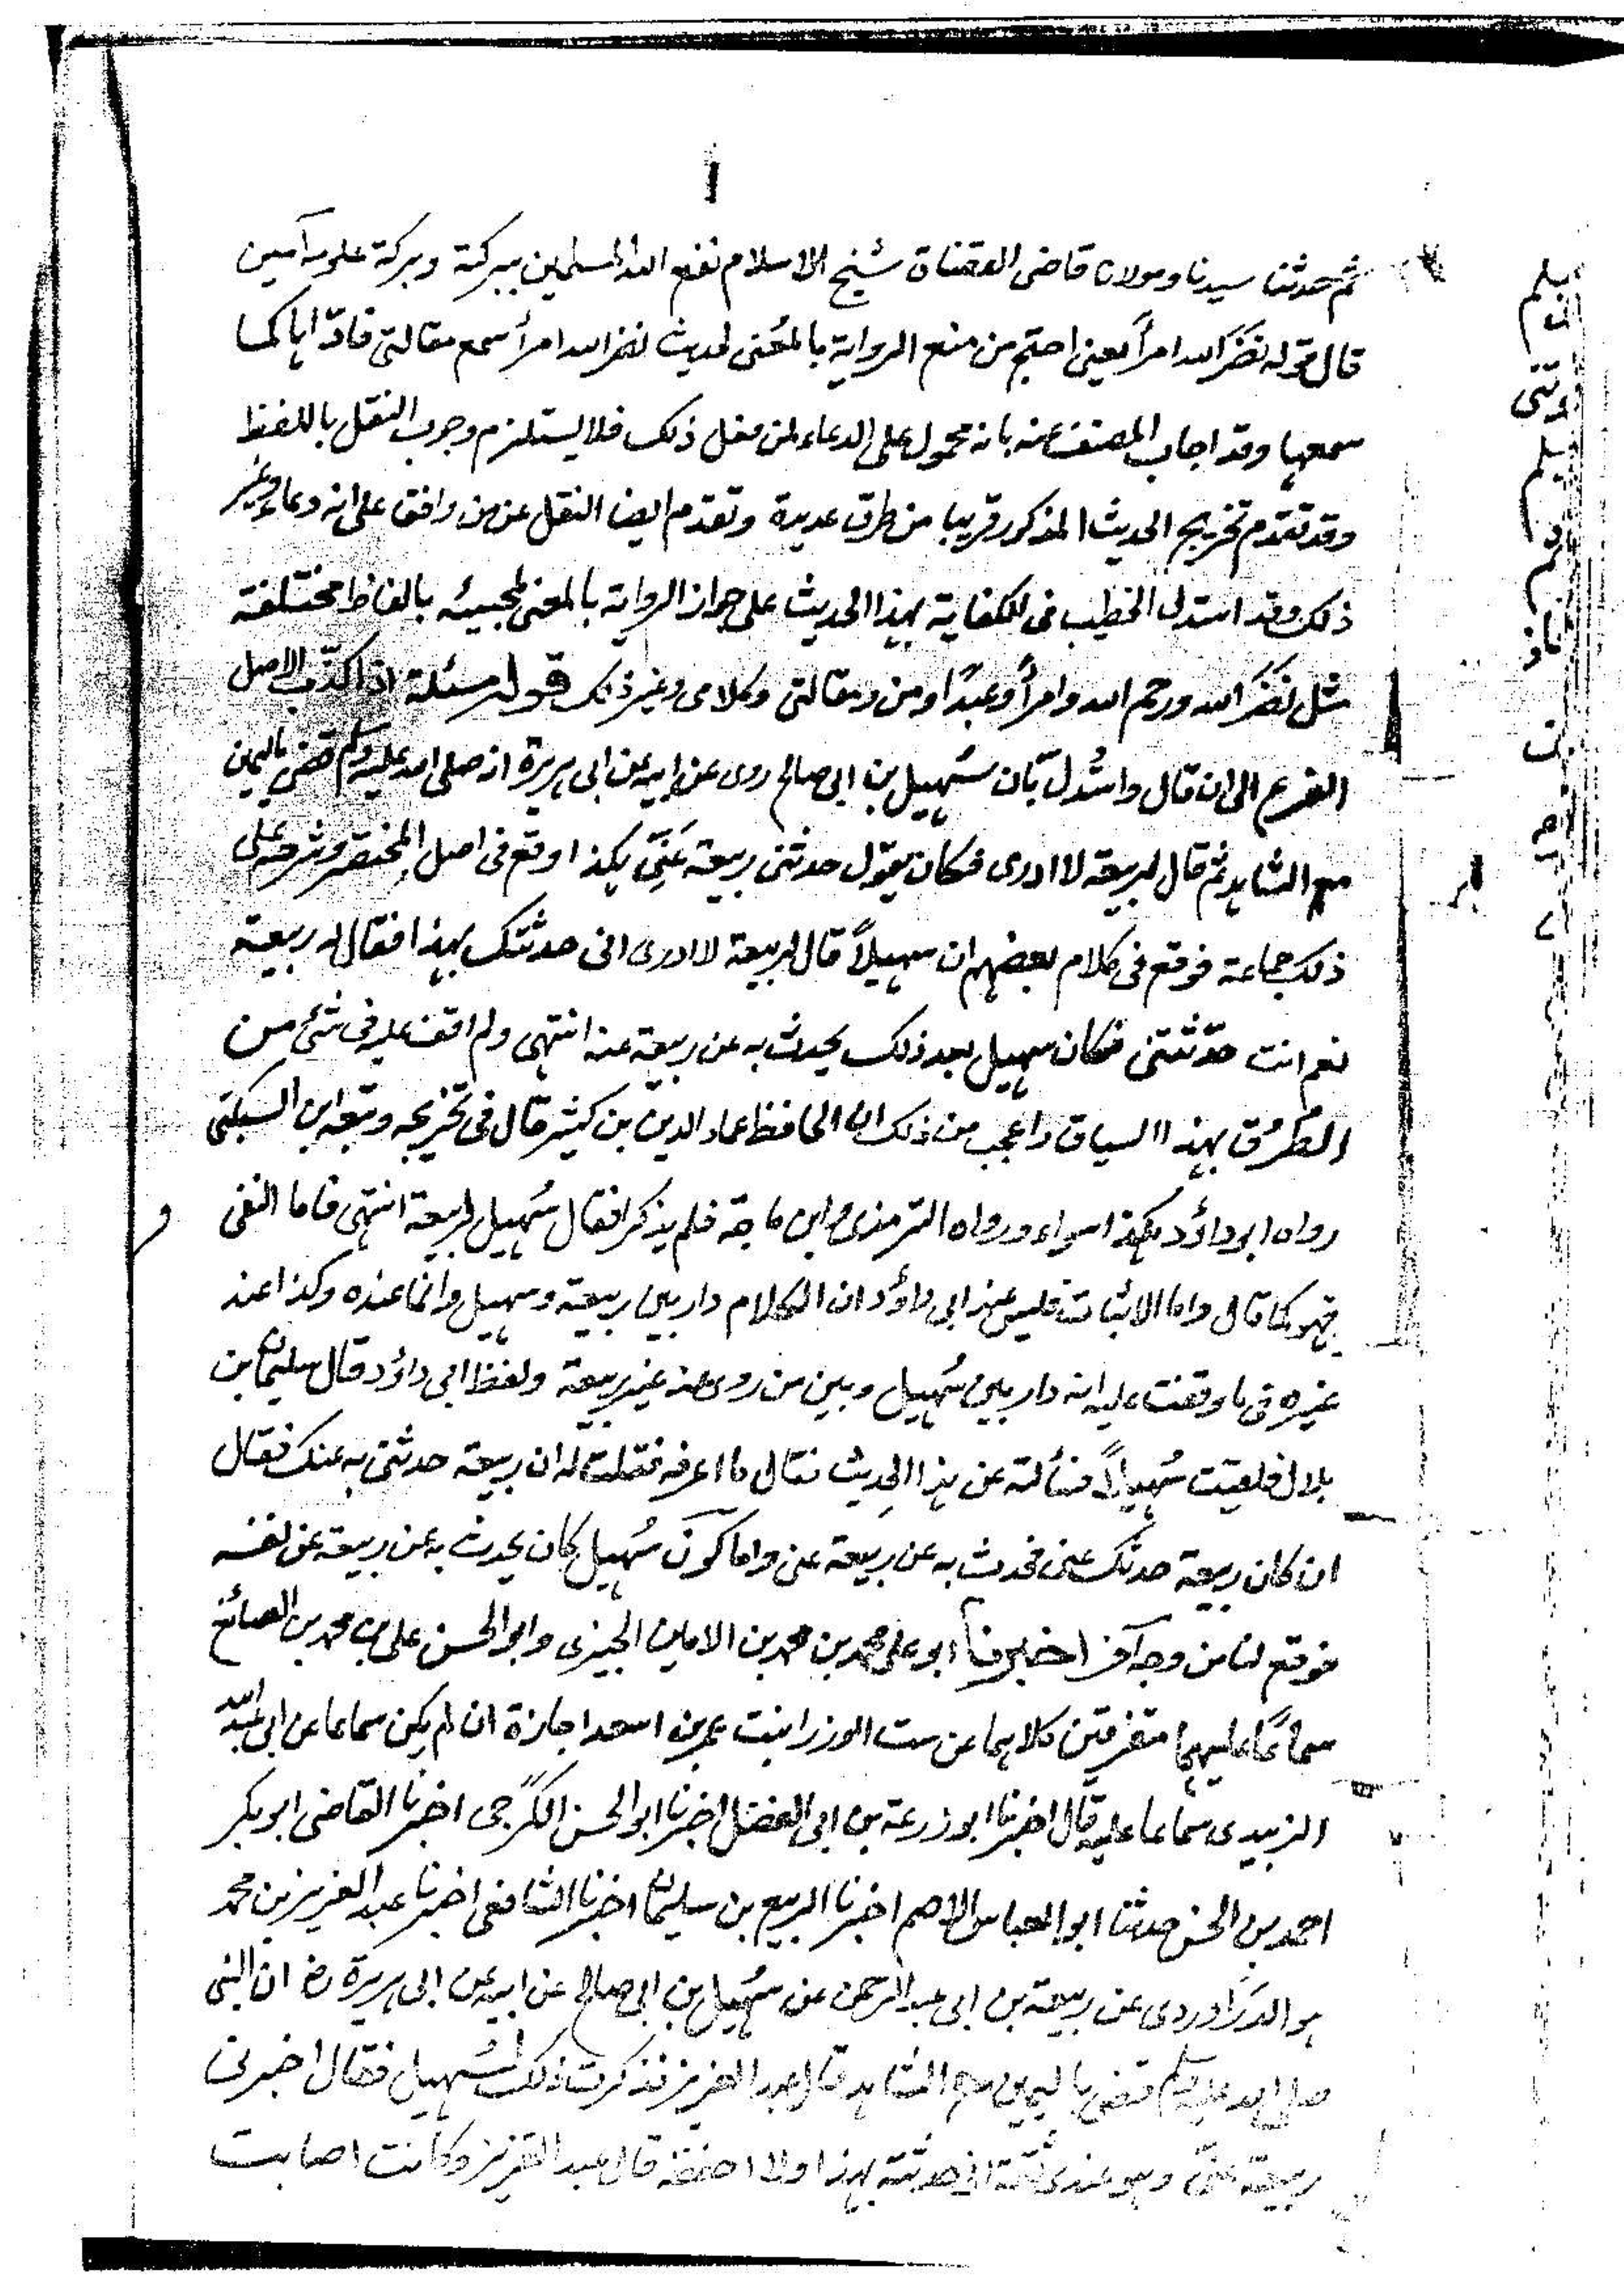 ا
ثم حدثنا سيدنا ومولانا قاضى القضاة شيخ الاسلام نفع الله المسلمين ببركته وبركة علومه آمين
قال قوله نضَّر الله امرأً يعنى احتج من منع الرواية بالمعنى لحديث نضر الله امرأ سمع مقالتى فادّاها كما
سمعها وقد اجاب المصنف عنه بانه محمول على الدعاء لمن فعل ذلك فلا يستلزم وجوب النقل باللفظ
وقد تقدم تخريج الحديث المذكور قريبا من طرق عديدة وتقدم ايضا النقل عن من وافق على انه دعاء وغير
ذلك وقد استدل الخطيب فى الكفاية بهذا الحديث على جواز الرواية بالمعنى لمجيئه بالفاظ مختلفة
مثل نضَّر الله ورحم الله وامرأً وعبدًا ومن ومقالتى وكلامى وغير ذلك قوله مسئلة اذا كذّب الاصل
الفرع الى ان قال واستُدل بأن سُهيل بن ابى صالح روى عن ابيه عن ابى هريرة انه صلى الله عليه وسلم قضى باليمين
مع الشاهد ثم قال لربيعة لا ادرى فكان يقول حدثنى ربيعة عَنِّى هكذا وقع فى اصل المختصر وشرحه على
ذلك جماعة فوقع فى كلام بعضهم ان سهيلاً قال لربيعة لا ادرى انى حدثتك بهذا فقال له ربيعة
نعم انت حدّثتنى فكان سهيل بعد ذلك يحدث به عن ربيعة عنه انتهى ولم اقف عليه فى شئ من
الطرق بهذا السياق واعجب من ذلك ان الحافظ عماد الدين بن كثير قال فى تخريجه وتبعه ابن السبكى
رواه ابو داؤد هكذا سواء ورواه الترمذى وابن ماجة فلم يذكرا فقال سُهيل لربيعة انتهى فاما النفى
فهو كما قال واما الاثبات فليس عند ابى داؤد ان الكلام دار بين ربيعة وسهيل وانما عنده وكذا عند
غيره فى ما وقفت عليه انه دار بين سُهيل وبين من روى عنه غير ربيعة ولفظ ابى داؤد قال سليمان بن
بلال فلقيت سُهيلاً فسألته عن هذا الحديث فقال ما اعرفه فقلت له ان ربيعة حدثنى به عنك فقال
ان كان ربيعة حدثك عنى فحدث به عن ربيعة عنى واما كون سُهيل كان يحدث به عن ربيعة عن نفسه
فوقع لنا من وجه آخر اخبرنا ابو على محمد بن محمد بن الامين الجيزى وابو الحسن على بن محمد بن الصائغ
سماعًا عليهما متفرقين كلاهما عن ست الوزرا بنت عمر بن اسعد اجازة ان لم يكن سماعا عن ابى عبد الله
الزبيدى سماعا عليه قال اخبرنا ابو زرعة بن ابى الفضل اخبرنا ابو الحسن الكرجى اخبرنا القاضى ابو بكر
احمد بن الحسن حدثنا ابو العباس الاصم اخبرنا الربيع بن سليمان اخبرنا الشافعى اخبرنا عبد العزيز بن محمد
هو الدَرَاوردى عن ربيعة بن ابى عبد الرحمن عن سُهيل بن ابى صالح عن ابيه عن ابى هريرة رض ان النبى
صلى الله عليه وسلم قضى باليمين مع الشاهد قال عبد العزيز فذكرت ذلك لسُهيل فقال اخبرنى
ربيعة عنى وهو عندى ثقة انى حدثته بهذا ولا احفظه قال عبد العزيز وكانت اصابت